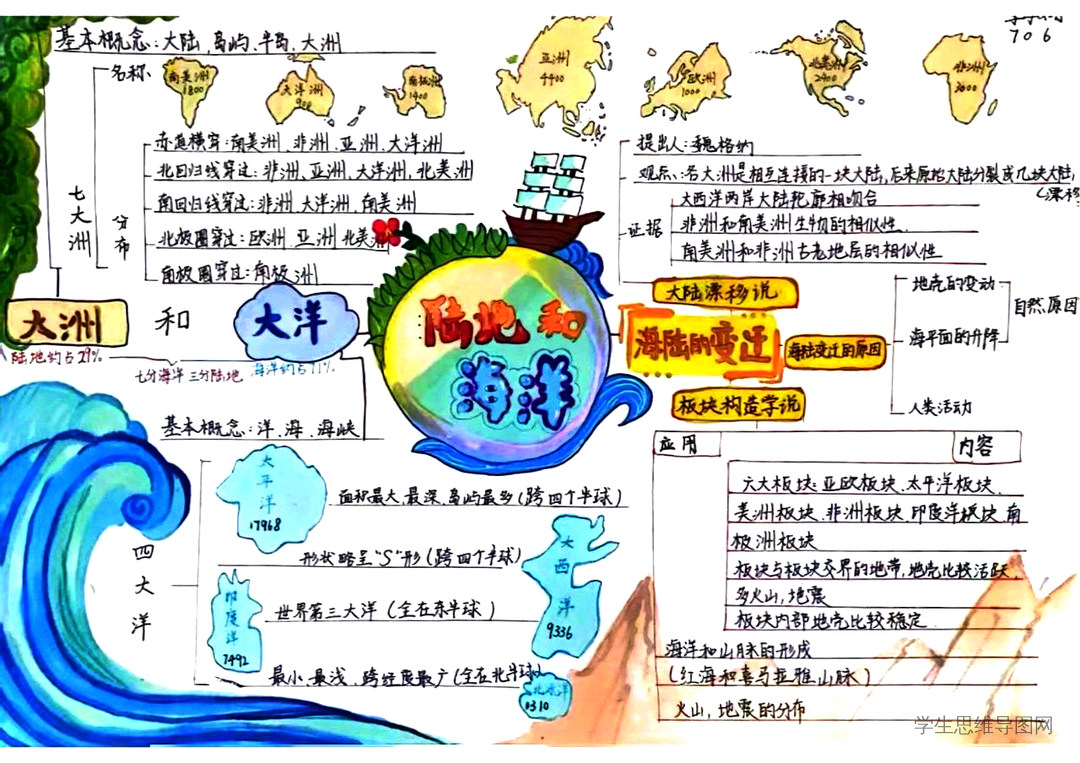 基本概念:大陆、岛屿、半岛、大洲
706
名称、
南美洲
1800
大洋洲
900
南极洲
1400
亚洲
4400
欧洲
1000
北美洲
2400
非洲
3000
七大洲
分布
赤道横穿:南美洲、非洲、亚洲、大洋洲
北回归线穿过:非洲、亚洲、大洋洲、北美洲
南回归线穿过:非洲、大洋洲、南美洲
北极圈穿过:欧洲、亚洲、北美洲
南极圈穿过:南极洲
大洲
和
大洋
陆地约占29%
七分海洋 三分陆地
海洋约占71%
基本概念:洋、海、海峡
陆地和
海洋
提出人:魏格纳
观点:各大洲是相互连接的一块大陆,后来原始大陆分裂成几块大陆
(漂移
证据
大西洋两岸大陆轮廓相吻合
非洲和南美洲生物的相似性
南美洲和非洲古老地层的相似性
大陆漂移说
海陆的变迁
海陆变迁的原因
板块构造学说
地壳的变动
海平面的升降
自然原因
人类活动
四大洋
太平洋
17968
面积最大、最深、岛屿最多(跨四个半球)
形状略呈“S”形(跨四个半球)
大西洋
9336
印度洋
7492
世界第三大洋(全在东半球)
最小、最浅、跨经度最广(全在北半球)
北冰洋
1310
应用
内容
六大板块:亚欧板块、太平洋板块、
美洲板块、非洲板块、印度洋板块、南
极洲板块
板块与板块交界的地带,地壳比较活跃,
多火山,地震
板块内部地壳比较稳定
海洋和山脉的形成
(红海和喜马拉雅山脉)
火山,地震的分布
学生思维导图网